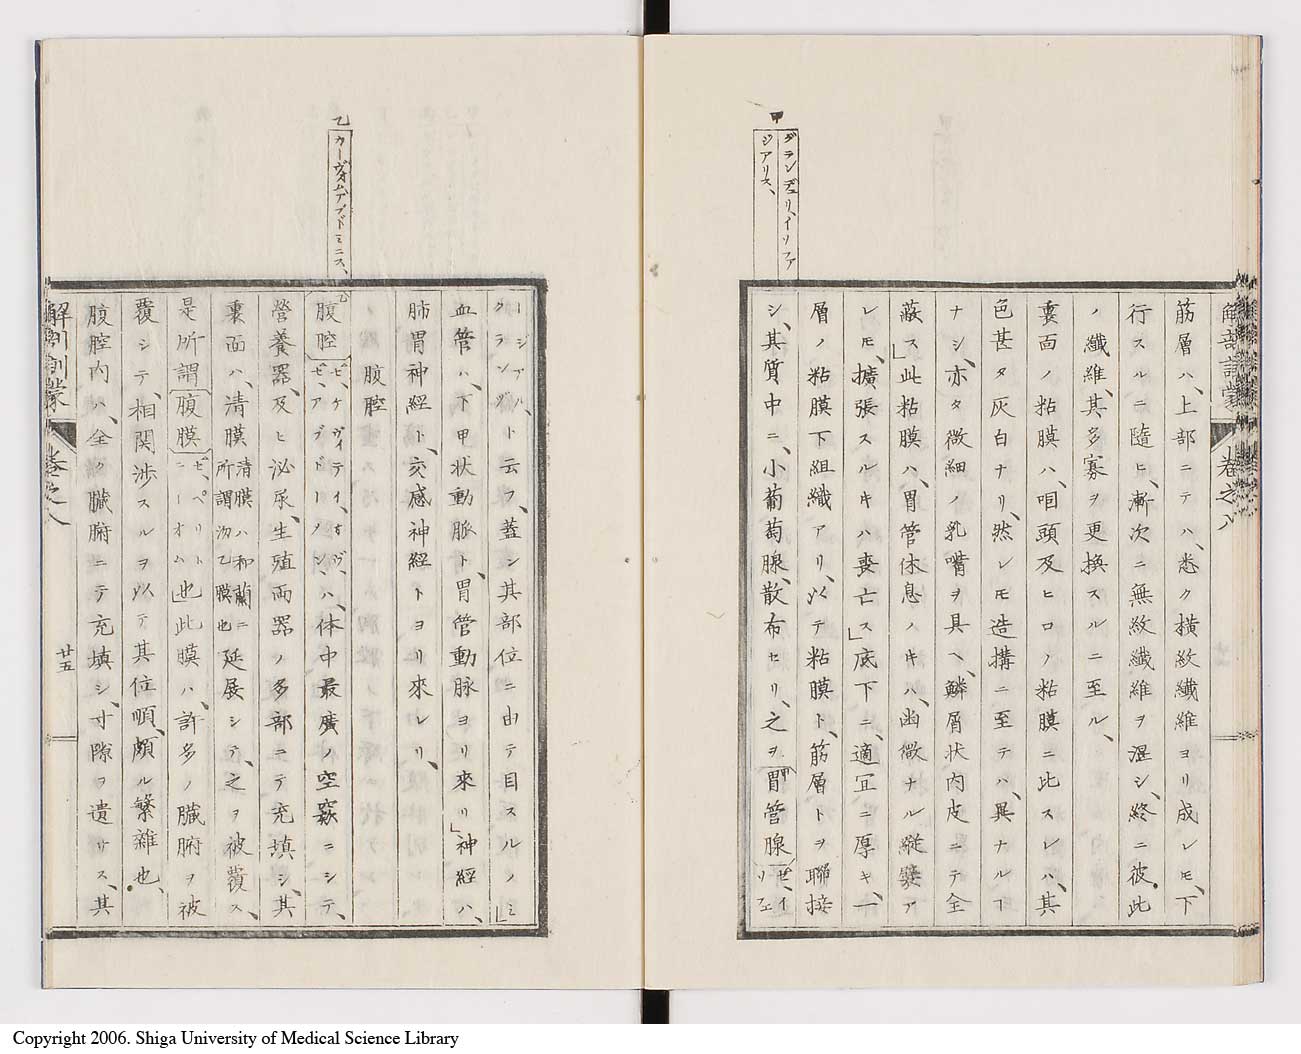 甲
グランデュリ、イソファ
ジアリス、
解剖訓蒙
巻之八
筋層ハ、上部ニテハ、悉ク横紋纖維ヨリ成レモ、下
行スルニ隨ヒ、漸次ニ無紋纖維ヲ混シ、終ニ彼此
ノ纖維、其多寡ヲ更換スルニ至ル、
裏面ノ粘膜ハ、咽頭及ヒ口ノ粘膜ニ此スレハ、其
色甚タ灰白ナリ、然レモ造搆ニ至テハ、異ナルヿ
ナシ、亦タ微細ノ乳嘴ヲ具ヘ、鱗屑状内皮ニテ全
蔽ス」此粘膜ハ、胃管休息ノキハ、幽微ナル縦襞ア
レモ、擴張スルキハ喪亡ス」底下ニ、適冝ニ厚キ、一
層ノ粘膜下組織アリ、以テ粘膜ト、筋層トヲ聯接
シ、其質中ニ、小葡萄腺、散布セリ、之ヲ甲胃管腺セ、イリフェ
乙
カーヴォムアブドミニス、
ージアル、クランツト云フ、蓋シ其部位ニ由テ目スルノミ」
血管ハ、下甲状動脈ト、胃管動脉ヨリ來リ」神經ハ、
肺胃神經ト、交感神經トヨリ來レリ、
腹腔
乙腹腔ゼ、ケヴィテイ、オヴ、ゼ、アブドーメン、ハ、体中最廣ノ空竅ニシテ、
營養器、及ヒ泌尿、生殖両器ノ多部ニテ充填シ、其
裏面ハ、清膜清膜ハ和蘭ニ所謂沕乙膜也延展シテ、之ヲ被覆ス、
是所謂腹膜ゼ、ペリトニーオム也」此膜ハ、許多ノ臓腑ヲ被
覆シテ、相関渉スルヲ以テ其位順、頗ル繁雜也、
腹腔内ハ、全ク臓腑ニテ充填シ、寸隙ヲ遺サス、其
解剖訓蒙
巻之八
廿五
Copyright 2006. Shiga University of Medical Science Library